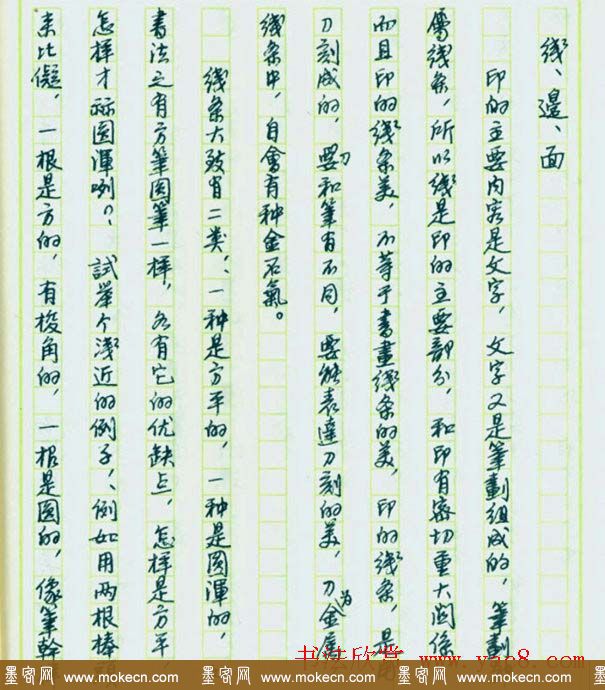 线、邊、面
印的主要内容是文字，文字又是筆劃組成的，筆劃
屬线条，所以线是印的主要部分，和印有密切重大関係
而且印的线条美，不等于書畫线条的美，印的线条，是
刀刻成的，刀和筆有不同，要能表達刀刻的美，刀為金属
线条中，自會有种金石氣。
线条大致有二类、一种是方平的，一种是圆渾的，
書法之有方筆圆筆一樣，各有它的优缺点，怎样是方平，
怎樣才称圆渾咧？試举个浅近的例子、例如用两根棒
来比儗，一根是方的，有棱角的，一根是圆的，像筆幹
书法欣赏
www.yac8.com
墨客网 www.mokecn.com 墨客网 www.mokecn.com 墨客网 www.mokecn.com